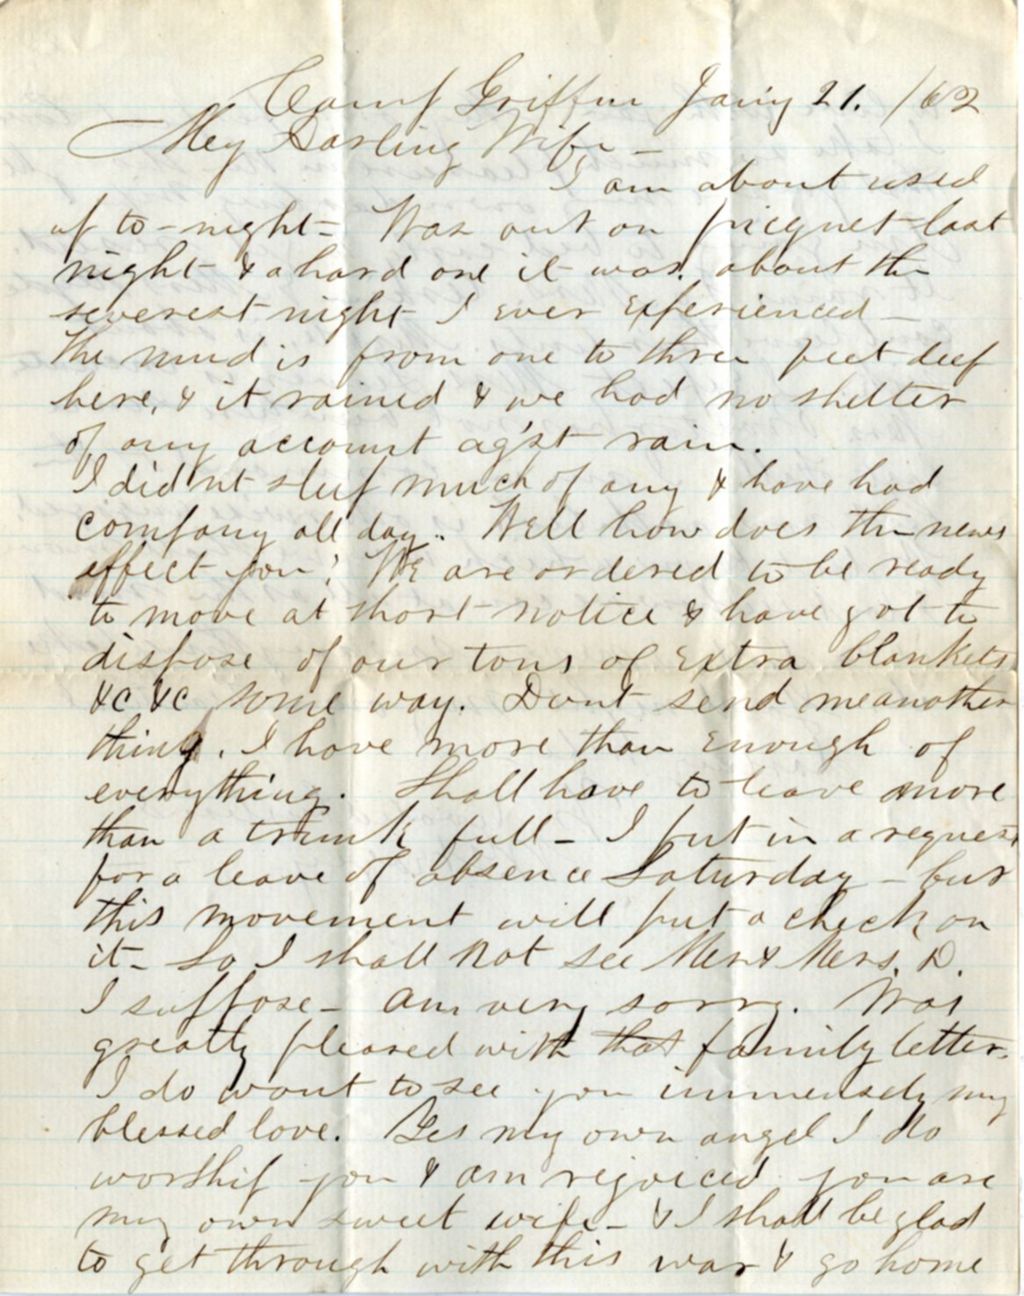 Camp Griffin Jan'y 21. /62
My Darling Wife -
I am about used
up to-night - Was out on picquet last
night & a hard one it was. about the
severest night I ever experienced -
The mud is from one to three feet deep
here, & it rained & we had no shelter
of any account ag'st rain.
I didnt sleep much of any & have had
company all day. Well how does the news
affect you? We are ordered to be ready
to move at short notice & have got to
dispose of our tons of extra blankets
&c &c some way. Dont send me another
thing. I have more than enough of
everything. Shall have to leave more
than a trunk full - I put in a request
for a leave of absence Saturday - but
this movement will put a check on
it - So I shall not see Mr & Mrs. D.
I suppose - am very sorry. Was
greatly pleased with that family letter.
I do want to see you immensely my
blessed love. Yes my own angel I do
worship you & am rejoiced you are
my own sweet wife - & I shall be glad
to get through with this war & go home